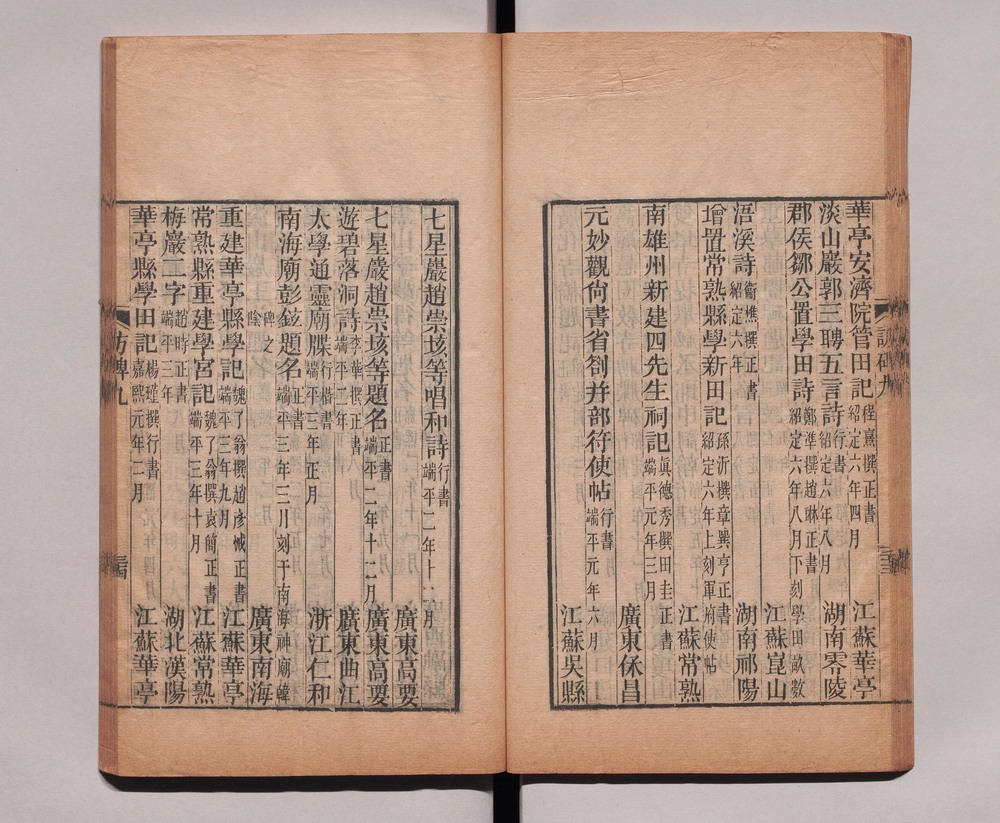 華亭安濟院管田記程熹撰正書紹定六年四月江蘇華亭
淡山巖郭三聘五言詩行書紹定六年八月湖南零陵
郡侯鄒公置學田詩鄭準撰趙㳟正書紹定六年八月下刻學田畝數江蘇崑山
浯溪詩衞樵撰正書紹定六年湖南祁陽
增置常熟縣學新田記孫沂撰章巽亨正書紹定六年上刻軍府使帖江蘇常熟
南雄州新建四先生祠記真德秀撰田圭正書端平元年三月廣東保昌
元妙觀尙書省劄并部符使帖行書端平元年六月江蘇吳縣
訪碑九
七星巖趙崇垓等唱和詩行書端平二年十二月廣東高要
七星巖趙崇垓等題名正書端平二年十二月廣東高要
遊碧落洞詩李華撰正書端平二年八月廣東曲江
太學通靈廟牒行楷書端平三年正月浙江仁和
南海廟彭鉉題名正書端平三年三月刻于南海神廟韓碑之陰廣東南海
重建華亭縣學記魏了翁撰趙彥悈正書端平三年九月江蘇華亭
常熟縣重建學宮記魏了翁撰袁簡正書端平三年十月江蘇常熟
梅巖二字趙時正書端平三年湖北漢陽
華亭縣學田記楊瑾撰行書嘉熙元年二月江蘇華亭
訪碑九